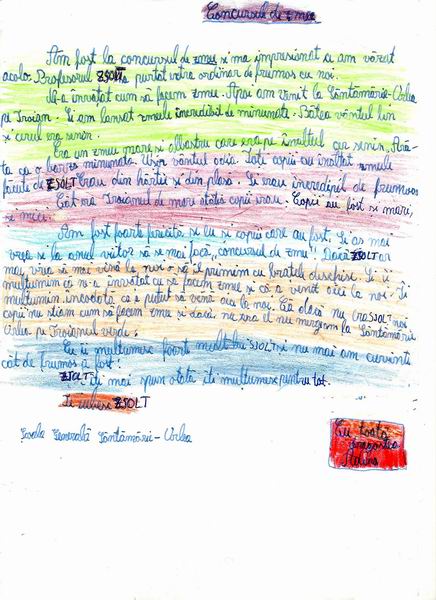 Concursul de zmee
Am fost la concursul de zmee și ma impresionat ce am văzut
acolo. Profesorul ZSOLT a purtat extra ordinar de frumos cu noi.
Ne-a învățat cum să facem zmeu. Apoi am venit la Sântămărie-Orlea
pe Troian. Și am lansat zmeele incredibil de minunate. Bătea vântul lin
și cerul era senin.
Era un zmeu mare și albastru care era pe înaltul cer senin. Ară-
ta ca o barză minunata. Toți copii au înălțat zmeele
făcute de ZSOLT Erau din hârtii și din plasă. Și erau incredipil de frumoas
Cât era Troianul de mare atâția copii erau. Copii au fost și mari,
și mici.
Am fost foarte fericită și eu și copii care au fost. Și as mai
vrea și la anul viitor să se mai facă „concursul de zmeu". Dacă ZSOLT ar
mai vrea să mai vină la noi o să îl primim cu brațele deschise. Și îi
multumim că ne-a învățat cu să facem zmeu și că a venit aici la noi. Și
multumim încodata că a putut să vină aici la noi. Că dacă nu era ZSOLT noi
copii nu știam cum să facem zmeu și dacă nu era el nu mergeam la Sântămărie
Orlea pe Troianul verde.
Eu îi multumesc foarte mult lui ZSOLT și nu mai am cuvinte
cât de frumos a fost.
ZSOLT îți mai spun otată iti multumesc pentru tot.
Te iubesc ZSOLT
Școala Generală Sântămărie-Orlea
Cu toată
dragostea
Adina